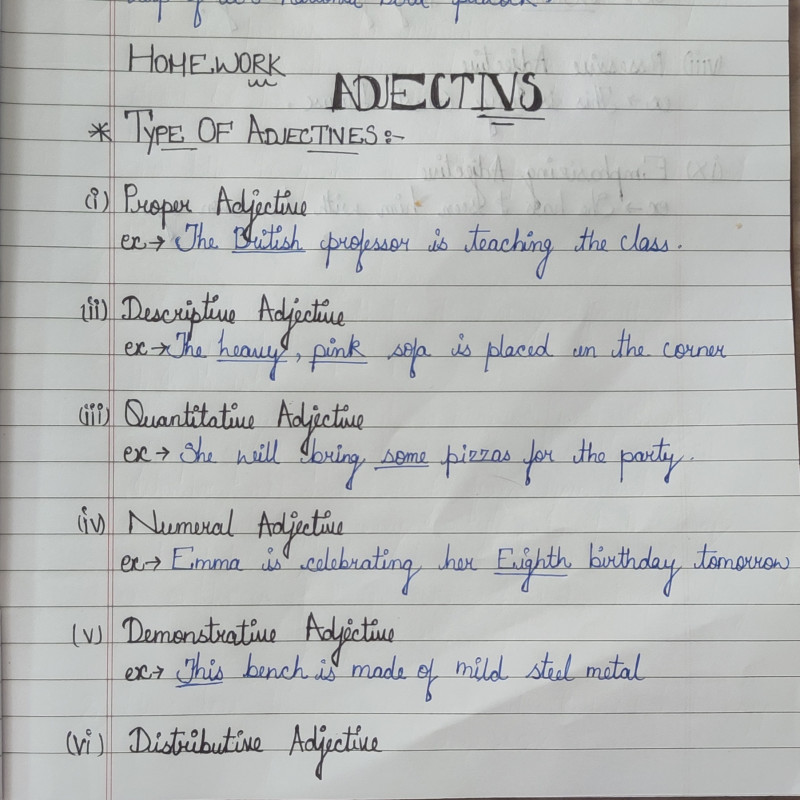 of it's national bird peacock.
HOMEWORK
ADJECTIVS
* TYPE OF ADJECTIVES :-
(i) Proper Adjective
ex → The British professor is teaching the class.
(ii) Descriptive Adjective
ex → The heavy, pink sofa is placed in the corner
(iii) Quantitative Adjective
ex → She will bring some pizzas for the party.
(iv) Numeral Adjective
ex → Emma is celebrating her Eighth birthday tomorrow
(v) Demonstrative Adjective
ex → This bench is made of mild steel metal
(vi) Distributive Adjective